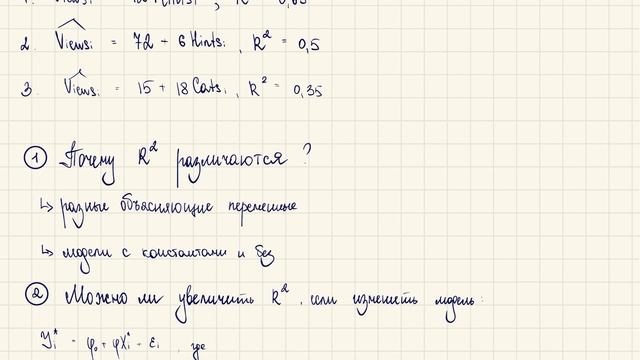 2. Views_i = 72 + 6 Hints_i, R² = 0,5
3. Views_i = 15 + 18 Cats_i, R² = 0,35
① Почему R² различаются ?
↳ разные объясняющие переменные
↳ модели с константами и без
② Можно ли увеличить R², если изменить модель:
y_i* = φ₀ + φX_i* + ε_i, где